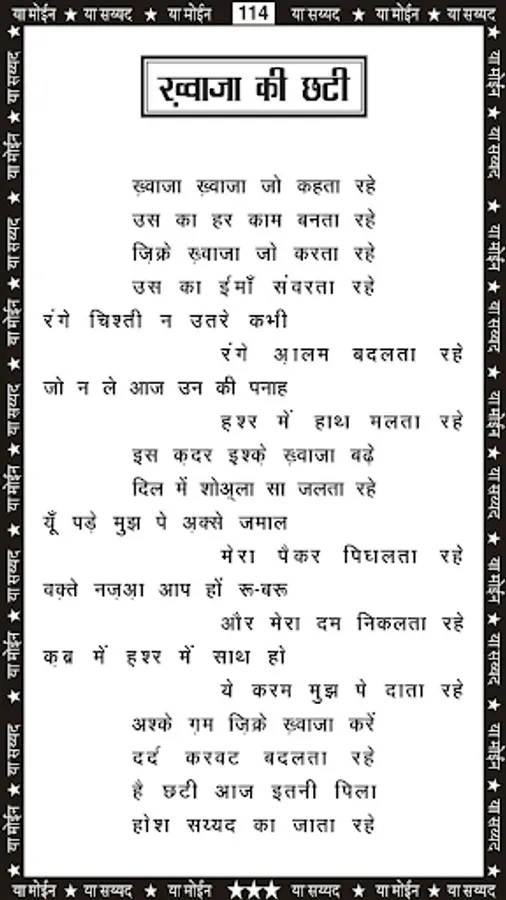 या मोईन ★ या सय्यद ★ या मोईन ★ 114 ★ या सय्यद ★ या मोईन ★ या सय्यद
ख़्वाजा की छटी
ख़्वाजा ख़्वाजा जो कहता रहे
उस का हर काम बनता रहे
ज़िक्रे ख़्वाजा जो करता रहे
उस का ईमाँ संवरता रहे
रंगे चिश्ती न उतरे कभी
रंगे आ़लम बदलता रहे
जो न ले आज उन की पनाह
ह़श्र में हाथ मलता रहे
इस क़दर इश्क़े ख़्वाजा बढ़े
दिल में शोअ़्ला सा जलता रहे
यूँ पड़े मुझ पे अ़क्से जमाल
मेरा पैकर पिघलता रहे
वक़्ते नज़्अ़ा आप हों रू-बरू
और मेरा दम निकलता रहे
क़ब्र में ह़श्र में साथ हो
ये करम मुझ पे दाता रहे
अश्के ग़म ज़िक्रे ख़्वाजा करें
दर्द करवट बदलता रहे
है छटी आज इतनी पिला
होश सय्यद का जाता रहे
या मोईन ★ या सय्यद ★ या मोईन ★★★ या सय्यद ★ या मोईन ★ या सय्यद